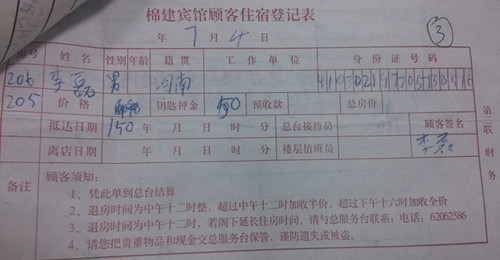 棉建宾馆顾客住宿登记表
年 7 月 4 日 ③
房号 姓名 性别 年龄 籍贯 工作单位 身份证号码
206 李磊 男 河南
205 价格 钥匙押金 预收款 总房价
抵达日期 150 年 月 日 时 分 总台接待员 顾客签名
离店日期 年 月 日 时 分 楼层值班员 李磊
备注 顾客须知:
1、凭此单到总台结算
2、退房时间为中午十二时整,超过中午十二时加收半价,超过下午十六时加收全价
3、退房时间为中午十二时,若阁下延长住房时间,请与总服务台联系;电话:62062586
4、请您把贵重物品和现金交总服务台保管,谨防遗失或被盗。
第二联 财务